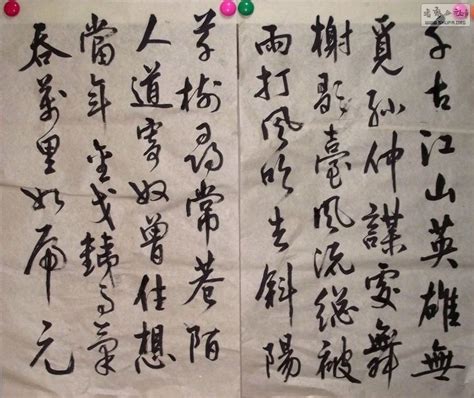 千古江山英雄無
覓孫仲謀處舞
榭歌臺風流總被
雨打風吹去斜陽
草樹尋常巷陌
人道寄奴曾住想
當年金戈鐵馬氣
吞萬里如虎元